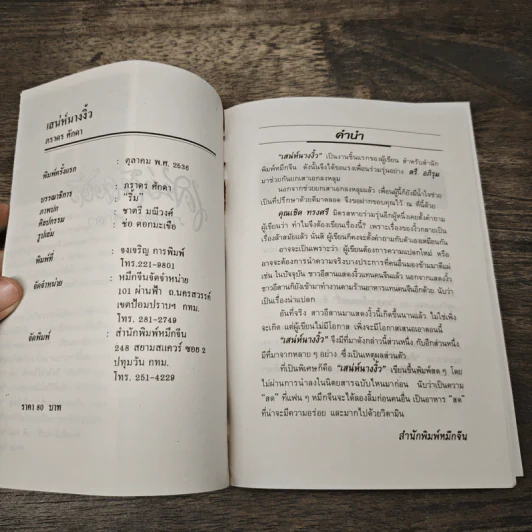 เสน่ห์นางงิ้ว
ภราดร ศักดา
พิมพ์ครั้งแรก : ตุลาคม พ.ศ. 2536
บรรณาธิการ : ภราดร ศักดา
ภาพปก : "ริม"
ศิลปกรรม : ชาตรี มณีวงศ์
รูปเล่ม : ช่อ ดอกมะเขือ
พิมพ์ที่ : จงเจริญ การพิมพ์
โทร.221-9801
จัดจำหน่าย : หมึกจีนจัดจำหน่าย
101 ผ่านฟ้า ถ.นครสวรรค์
เขตป้อมปราบฯ กทม.
โทร. 281-2749
จัดพิมพ์ : สำนักพิมพ์หมึกจีน
248 สยามสแควร์ ซอย 2
ปทุมวัน กทม.
โทร. 251-4229
ราคา 80 บาท
คำนำ
"เสน่ห์นางงิ้ว" เป็นงานชิ้นแรกของผู้เขียน สำหรับสำนัก
พิมพ์หมึกจีน ดังนั้นจึงได้ขอแรงเพื่อนร่วมรุ่นอย่าง ตรี อภิรุม
มาช่วยกันยกเสาเอกลงหลุม
นอกจากช่วยยกเสาเอกลงหลุมแล้ว เพื่อนผู้นี้ก็ยังมีน้ำใจช่วย
เป็นที่ปรึกษาด้วยดีมาตลอด จึงขอฝากขอบคุณไว้ ณ ที่นี้ด้วย
คุณเชิด ทรงศรี มิตรสหายร่วมรุ่นอีกผู้หนึ่งเคยตั้งคำถาม
ผู้เขียนว่า ทำไมจึงต้องเขียนเรื่องนี้? เพราะเรื่องของงิ้วกลายเป็น
เรื่องล้าสมัยแล้ว นั่นสิ ผู้เขียนก็คงจะตั้งคำถามกับตัวเองเหมือนกัน
อาจจะเป็นเพราะว่า ผู้เขียนต้องการความแปลกใหม่ หรือ
อาจจะต้องการนำความจริงบางประการที่คนอื่นมองข้ามมาตีแผ่
เช่น ในปัจจุบัน ชาวอีสานแสดงงิ้วแทนคนจีนแล้ว นอกจากแสดงงิ้ว
ชาวอีสานก็ยังเข้ามาทำงานตามร้านอาหารแทนคนจีนอีกด้วย นับว่า
เป็นเรื่องน่าแปลก
อันที่จริง สาวอีสานมาแสดงงิ้วนี้เกิดขึ้นนานแล้ว ไม่ใช่เพิ่ง
จะเกิด แต่ผู้เขียนไม่มีโอกาส เพิ่งจะมีโอกาสเสนอเอาตอนนี้
"เสน่ห์นางงิ้ว" จึงมีที่มาดังกล่าวนี้ส่วนหนึ่ง กับอีกส่วนหนึ่ง
มีที่มาจากหลาย ๆ อย่าง ซึ่งเป็นเหตุผลส่วนตัว
ที่เป็นพิเศษก็คือ "เสน่ห์นางงิ้ว" เขียนขึ้นพิมพ์สด ๆ โดย
ไม่ผ่านการนำลงในนิตยสารฉบับไหนมาก่อน นับว่าเป็นความ
"สด" ที่แฟน ๆ หมึกจีนจะได้ลองลิ้มก่อนคนอื่น เป็นอาหาร "สด"
ที่น่าจะมีความอร่อย และมากไปด้วยวิตามิน
สำนักพิมพ์หมึกจีน